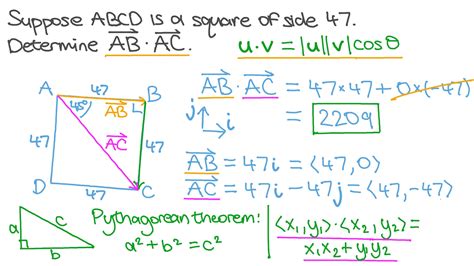 Suppose ABCD is a square of side 47.
Determine AB · AC.
u·v = |u||v|cosθ
A 47 B
45°
AB
AC
47
47
D 47 C
AB · AC = 47×47 + 0×(-47)
= 2209
j
i
AB = 47i = ⟨47, 0⟩
AC = 47i - 47j = ⟨47, -47⟩
a c
b
Pythagorean theorem:
a² + b² = c²
⟨x₁, y₁⟩·⟨x₂, y₂⟩ =
x₁x₂ + y₁y₂